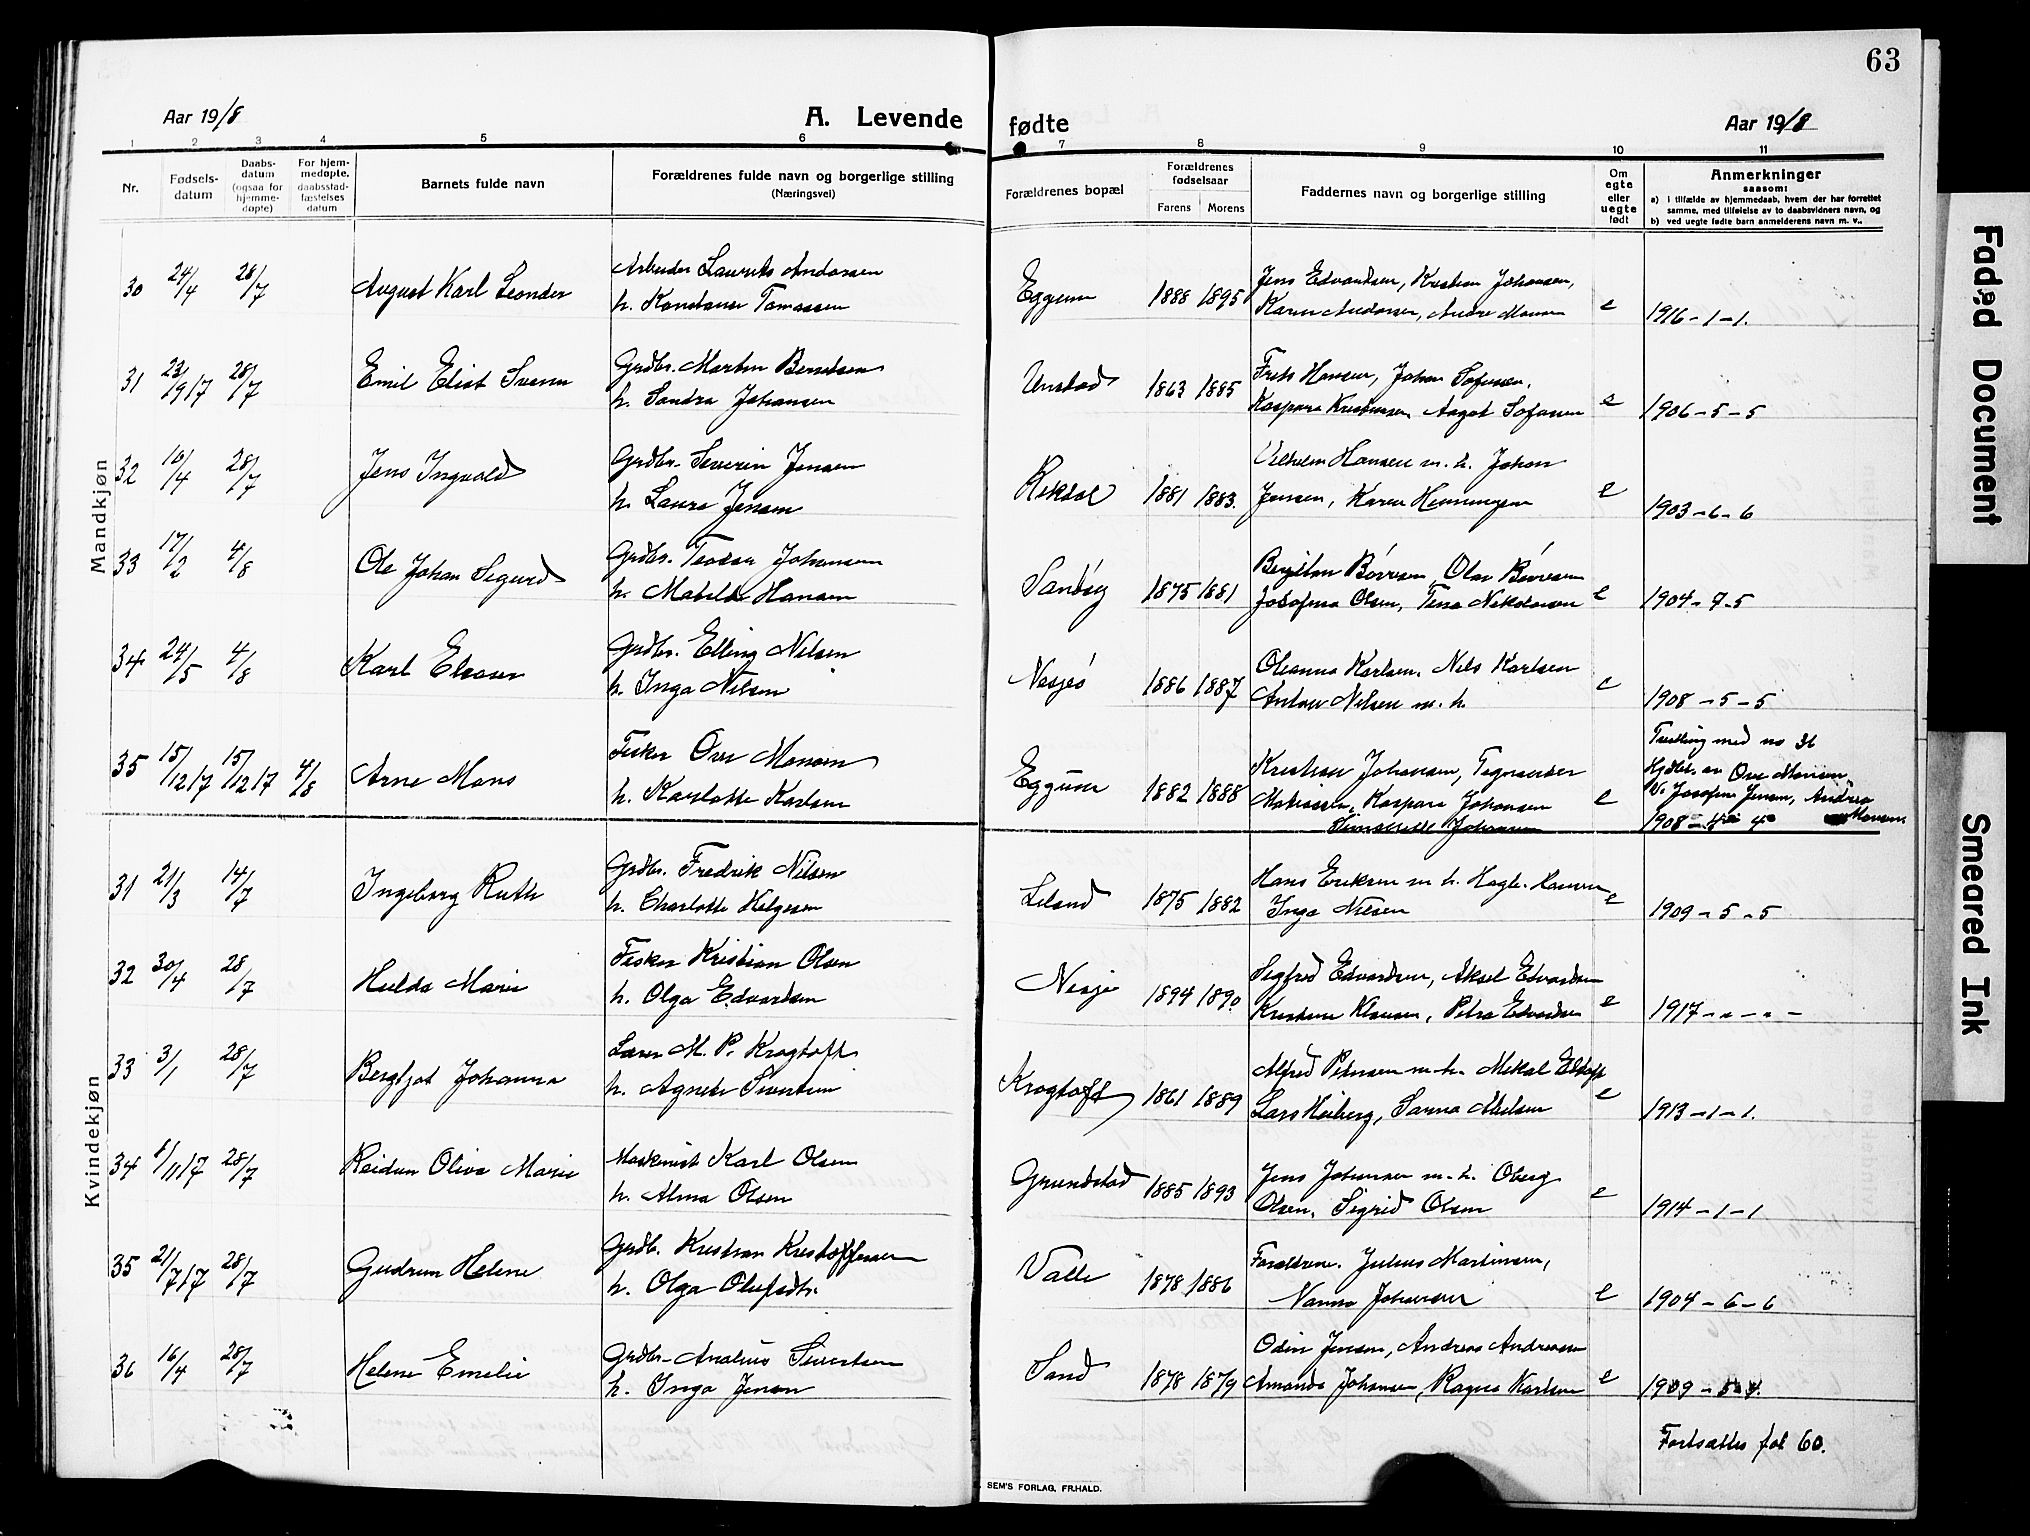 63
Aar 1918
A. Levende
fødte
Aar 1918
1 2 3 4 5 6 7 8 9 10 11
Nr.
Fødsels-
datum
Daabs-
datum
(ogsaa for
hjemme-
døpte)
For hjem-
medøpte,
daabsstad-
fæstelses
datum
Barnets fulde navn
Forældrenes fulde navn og borgerlige stilling
(Næringsvei)
Forældrenes bopæl
Forældrenes
fødselsaar
Farens Morens
Faddernes navn og borgerlige stilling
Om
egte
eller
uegte
født
Anmerkninger
saasom:
a) i tilfælde av hjemmedaab, hvem der har forrettet
samme, med tilføielse av to daabsvidners navn, og
b) ved uegte fødte barn anmelderens navn m. v..
Mandkjøn
30 24/4 28/7 August Karl Leonder
Arbeider Laurits Andorsen
h. Konstanse Tomassen
Eggum 1888 1895
Jens Edvardsen, Kristian Johansen,
Karen Andorsen, Andre Monsen e 1916-1-1.
31 23/9 17 28/7 Emil Elist Svenn
Grdbr. Morten Berntsen
h. Sandra Johansen
Unstad 1863 1885
Frits Hansen, Johan Sofusen,
Kaspara Kristensen, Aagot Sofusen e 1906-5-5
32 16/4 28/7 Jens Ingvald
Grdbr. Severin Jensen
h. Laura Jensen
Rekdal 1881 1883.
Vilhelm Hansen m. h. Johan
Jensen, Karen Henningsen e 1903-6-6
33 17/2 4/8 Ole Johan Sigurd
Grdbr. Teodor Johansen
h. Matilde Hansen
Sandøy 1875 1881
Olav Børresen
Josefina Olsen, e 1904-7-5
34 24/5 4/8 Karl Elvaser
Grdbr. Elling Nilsen
h. Inga Nilsen
Nesje 1886 1887
Oleanna Karlsen, Nils Karlsen
Anton Nilsen m. h. e 1908-5-5
35 15/12 17 15/12 17 4/8 Arne Mons
Fisker Ove Monsen
h. Karlotte Karlsen
Eggum 1882 1888
Kristian Johansen,
Kaspara Johansen e
Johansen
Tvilling med no 36
Hjdbt. av Ove Monsen,
V. Josefine Jensen, Andrea
1908- 4 Monsen
Kvindekjøn
31 21/3 14/7 Ingeborg Ruth
Grdbr. Fredrik Nilsen
h. Charlotte Helgesen
Leland 1875 1882
Hans Eriksen m. h. Hagb. Hansen
Inga Nilsen e 1909-5-5
32 30/4 28/7 Hulda Marie
Fisker Kristian Olsen
h. Olga Edvardsen
Nesje 1894 1890
Sigfred Edvardsen, Aksel Edvardsen
Kristine Klausen, Petra Edvardsen e 1917-
33 3/1 28/7 Bergljot Johanna
Lærer M. P. Krogtoft
h. Agnete Sivertsen
Krogtoft 1861 1889
Alfred Petersen m. h. Mikal Eltoft
Lars Heiberg, Sanna Nielsen e 1913-1-1.
34 1/11 17 28/7 Reidun Oliva Marie
Maskinist Karl Olsen
h. Alma Olsen
Grundstad 1885 1893
Jens Johansen m. h. Oberg
Olsen, Sigrid Olsen e 1914-1-1
35 21/7 17 28/7 Gudrun Helene
Grdb. Kristian Kristoffersen
h. Olga Olufsdtr.
Valle 1878 1886
Forældrene. Julius Martinsen,
Nanna Johansen e 1904-6-6
36 16/4 28/7 Helene Emelie
Grdbr. Analius Sivertsen
h. Inga Jensen
Sand 1878 1879
Odin Jensen, Andreas Andreasen
Amanda Johansen, Ragna Karlsen e 1909-
Fortsættes fol 60.
SEM'S FORLAG, FR.HALD.
Faded Document
Smeared Ink